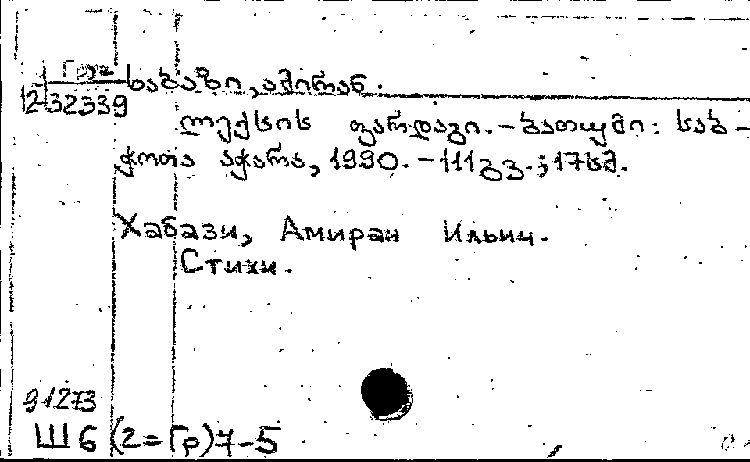 Груз
12-32339
ხაბაზი, ამირან.
ლექსის ფარდაგი. - ბათუმი: საბ-
ჭოთა აჭარა, 1990. - 111 გვ.; 17 სმ.
Хабази, Амиран Ильич.
Стихи.
91273
Ш6(2=Гр)7-5